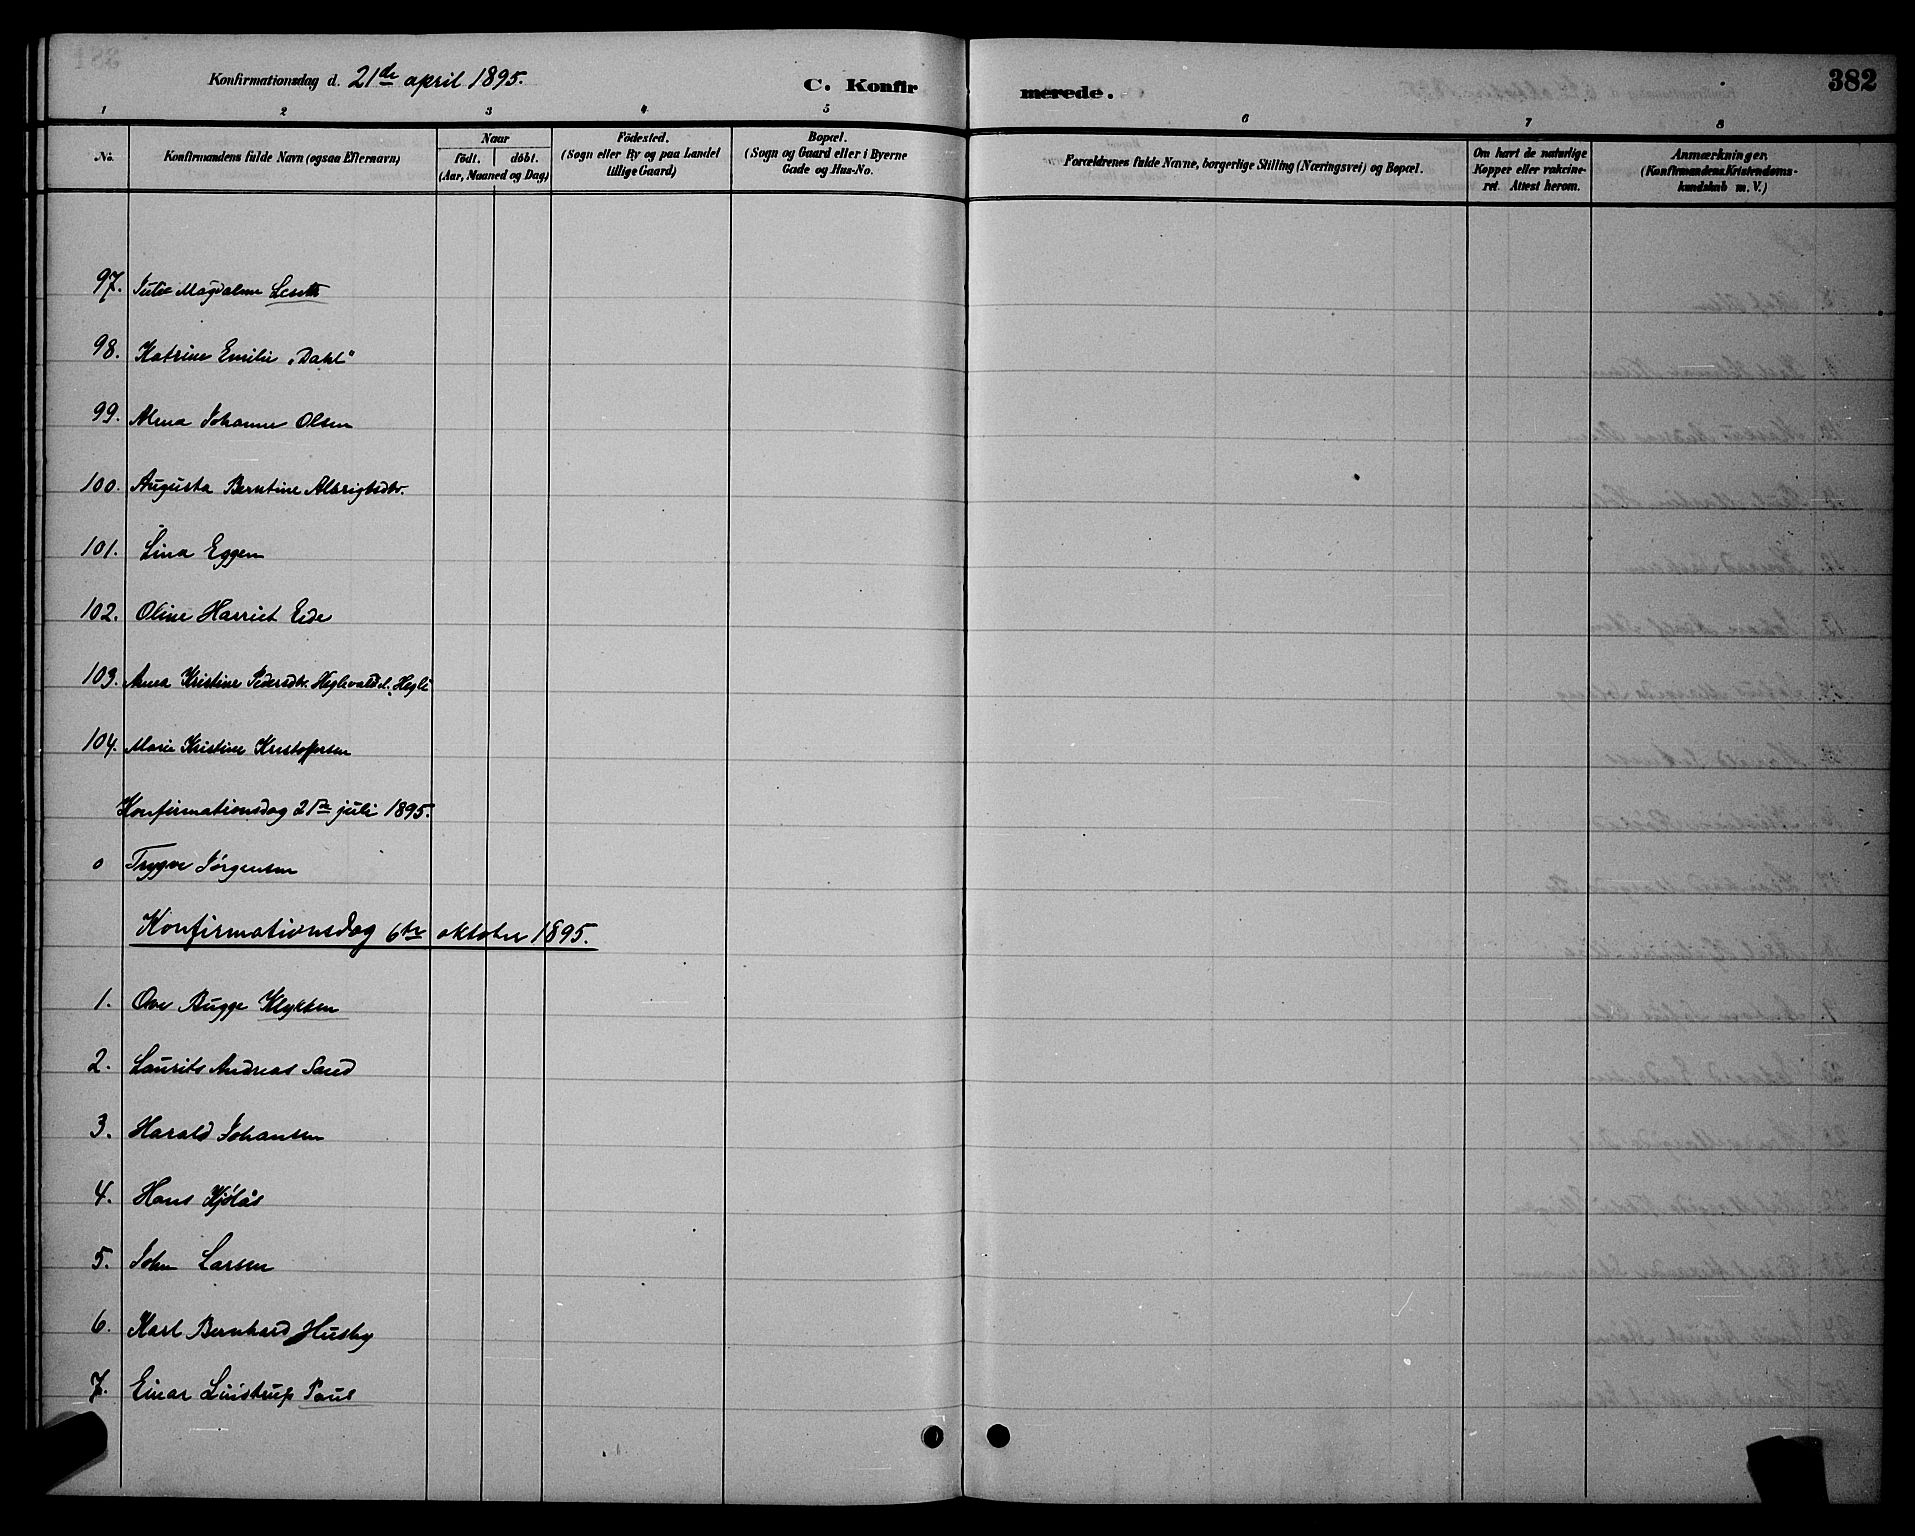 Konfirmationsdag d. 21de april 1895.
C. Konfirmerede.
382
1 2 3 4 5 6 7 8
No.
Konfirmandens fulde Navn (ogsaa Efternavn)
Naar
født. døbt.
(Aar, Maaned og Dag)
Födested.
(Sogn eller By og paa Landet
tillige Gaard)
Bopæl.
(Sogn og Gaard eller i Byerne
Gade og Hus-No.
Forældrenes fulde Navne, borgerlige Stilling (Næringsvei) og Bopæl.
Om havt de naturlige
Kopper eller vakcine-
ret. Attest herom.
Anmærkninger.
(Konfirmandens Kristendoms-
kundskab m. V.)
97. Magdalene
98. Katrine Emilie „Dahl"
99. Alma Johanne Olsen
100. Augusta Berntine Albrigtsdtr.
101. Lina Eggen
102. Oline Harriet Eide
103. Anna Kristine Pedersdtr. Hegli
104. Marie Kristine Kristoffersen
Konfirmationsdag 21de juli 1895.
0 Trygve Jörgensen
Konfirmationsdag 6te oktober 1895.
1. Ove Bugge
2. Laurits Andreas Sand
3. Harald Johansen
4. Hans Kjölås
5. John Larsen
6. Karl Bernhard Husby
7. Einar Lindstrup Paul